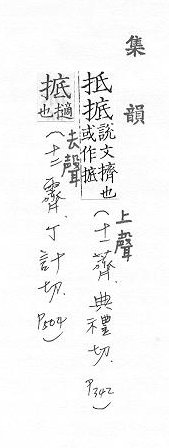 集韻
抵掋說文擠也或作掋
上聲
(十一薺、典禮切、P342)
掋擿也
去聲
(十二霽、丁計切、P504)